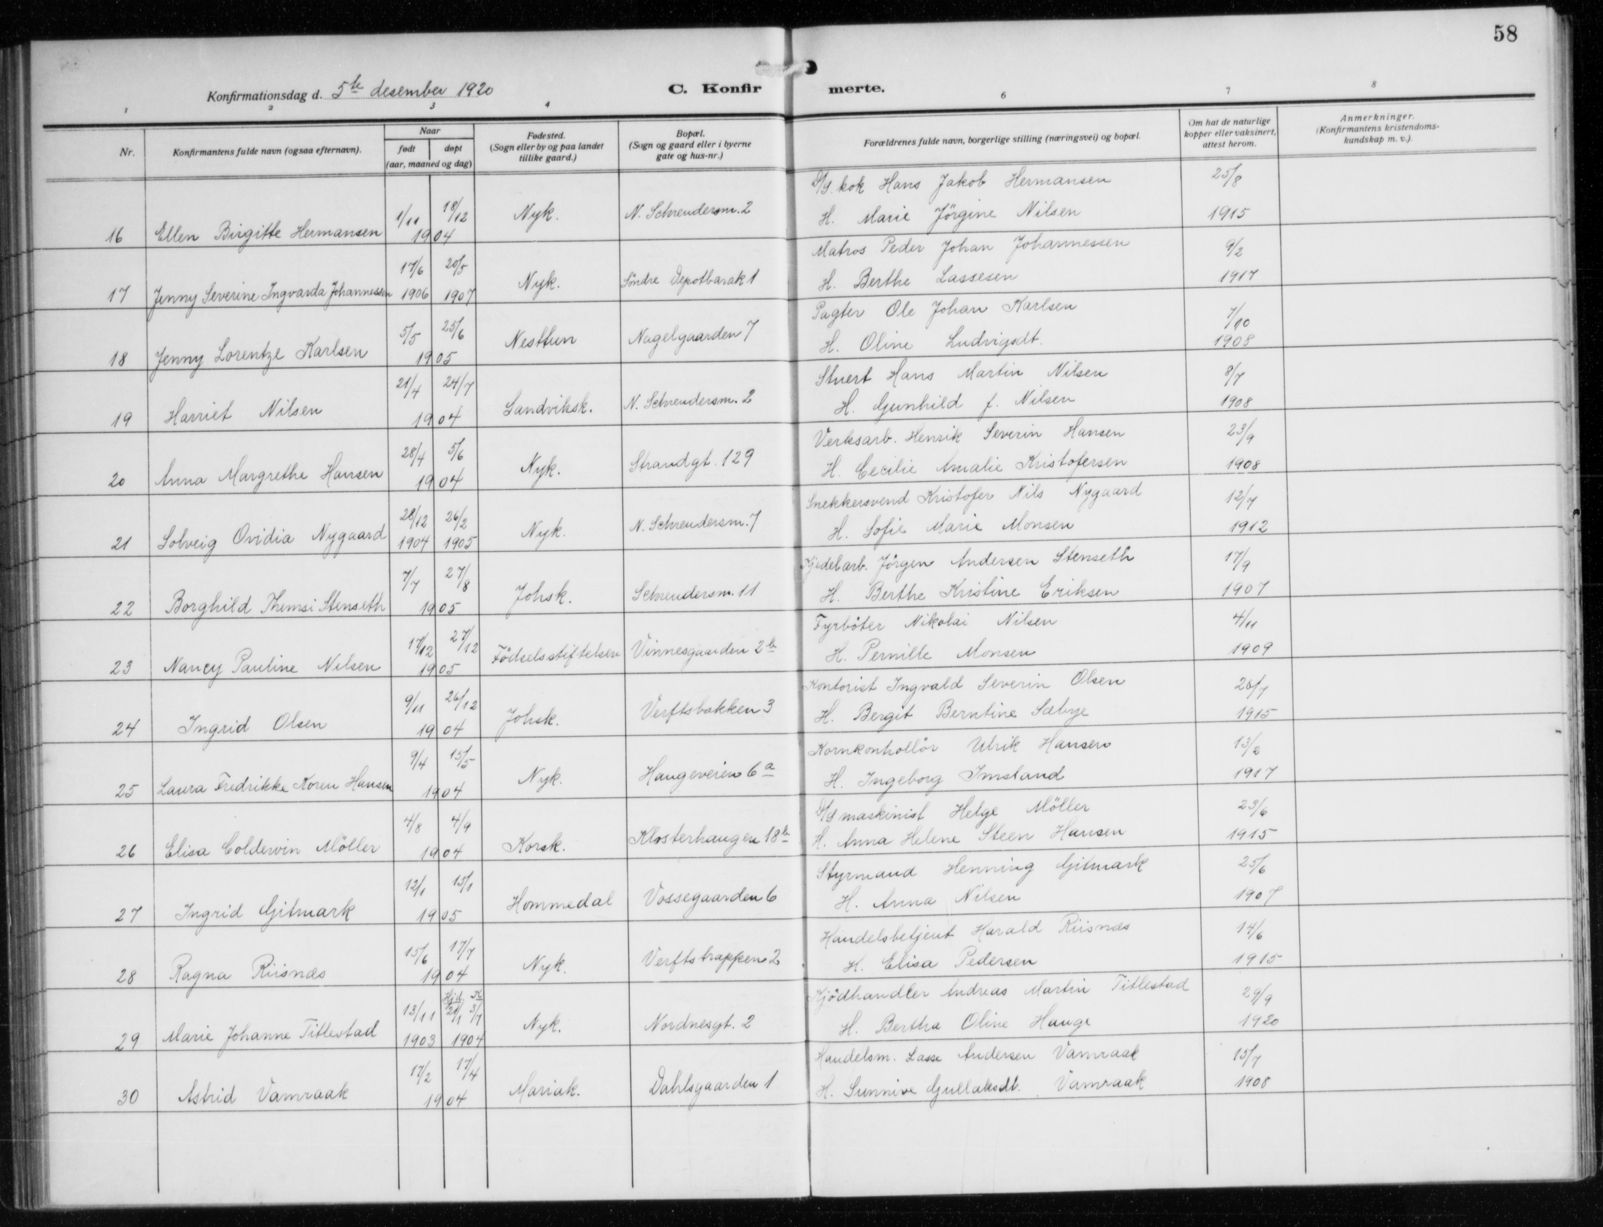 58
Konfirmationsdag d. 5te desember 1920
C. Konfirmerte.
1 2 3 4 6 7 8
Nr. Konfirmantens fulde navn (ogsaa efternavn). Naar født døpt (aar, maaned og dag) Fødested. (Sogn eller by og paa landet tillike gaard.) Bopæl. (Sogn og gaard eller i byerne gate og hus-nr.) Forældrenes fulde navn, borgerlige stilling (næringsvei) og bopæl. Om hat de naturlige kopper eller vaksinert, attest herom. Anmerkninger. (Konfirmantens kristendomskundskap m. v.).
kok Hans Jakob Hermansen 25/8
16 Ellen Birgitte Hermansen 1/11 18/12 1904 Nyk. N. Schreudersm. 2 H. Marie Jörgine Nilsen 1915
Matros Peder Johan Johannessen 9/2
17 Jenny Severine Ingvarda Johannessen 17/6 1906 20/5 1907 Nyk. Söndre Depotbarak 1 H. Berthe Lassesen 1917
Pagter Ole Johan Karlsen 7/10
18 Jenny Lorentze Karlsen 5/5 25/6 1905 Nesttun Nagelgaarden 7 H. Oline Ludvigsdt. 1908
Stuert Hans Martin Nilsen 8/7
19 Harriet Nilsen 21/4 24/7 1904 Sandviksk. N. Schreudersm. 2 H. Gunhild f. Nilsen 1908
Verksarb. Henrik Severin Hansen 23/9
20 Anna Margrethe Hansen 28/4 5/6 1904 Nyk. Strandgt. 129 H. Cecilie Amalie Kristofersen 1908
Snekkersvend Kristofer Nils Nygaard 12/7
21 Solveig Ovidia Nygaard 28/12 1904 26/2 1905 Nyk. N. Schreudersm. 7 H. Sofie Marie Monsen 1912
Kjedelarb. Jörgen Andersen Stenseth 17/9
22 Borghild Themsi Stenseth 7/7 27/8 1905 Johsk. Schreudersm. 11 H. Berthe Kristine Eriksen 1907
Fyrböter Nikolai Nilsen 4/11
23 Nancy Pauline Nilsen 17/12 27/12 1905 Födselsstiftelsen Vinnesgaarden 2b H. Pernille Monsen 1909
Kontorist Ingvald Severin Olsen 26/7
24 Ingrid Olsen 9/11 26/12 1904 Johsk. Verftsbakken 3 H. Bergit Berntine Sæbye 1915
Kornkontrollör Ulrik Hansen
25 Laura Fredrikke Koren Hansen 9/4 15/5 1904 Nyk. Haugeveien 6a H. Ingeborg Imsland 1917
maskinist Helge Möller 23/6
26 Elisa Colderwin Möller 4/8 4/9 1904 Korsk. Klosterhaugen 18b H. Anna Helene Steen Hansen 1915
Styrmand Henning Gitmark 25/6
27 Ingrid Gitmark 12/1 15/1 1905 Hommedal Vossegaarden 6 H. Anna Nilsen 1907
Handelsbetjent Harald Riisnæs 14/6
28 Ragna Riisnæs 15/6 17/7 1904 Nyk. Verftstrappen 2 H. Elisa Pedersen 1915
Kjödhandler Andreas Martin Titlestad 29/9
29 Marie Johanne Titlestad 13/11 1903 1904 Nyk. Nordnesgt. 2 H. Bertha Oline Hauge 1920
Handelsm. Lasse Andersen Vamraak 13/7
30 Astrid Vamraak 17/2 17/4 1904 Mariak. Dahlsgaarden 1 H. Sunnive Gullaksdt. Vamraak 1908